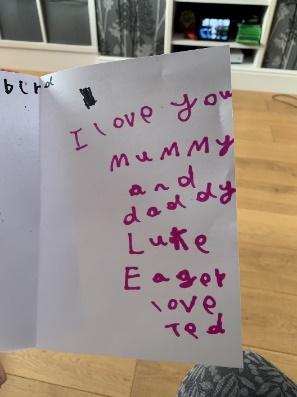 bird
I love you
mummy
and
daddy
Luke
Eager
love
Ted